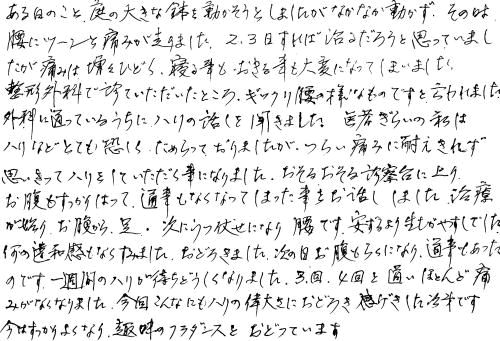 ある日のこと、庭の大きな鉢を動かそうとしましたがなかなか動かず、その時
腰にツーンと痛みが走りました。2、3日すれば治るだろうと思っていまし
たが痛みは増々ひどく、寝る事も、おきる事も大変になってしまいました。
整形外科で診ていただいたところ、ギックリ腰の様なものですと言われました
外科に通っているうちに、ハリの話しを聞きました 医者ぎらいの私は
ハリなどとても恐しく、ためらっておりましたが、つらい痛みに耐えきれず
思いきってハリをしていただく事になりました。おそるおそる診察台に上り
お腹もすっかりはって、通事もなくなってしまった事をお話ししました。治療
が始り、お腹から、足、次にうつ伏せになり 腰です。安するより生むがやすしでした
何の違和感もなくすみました。おどろきました。次の日お腹もらくになり、通事もあった
のです。一週間のハリが待ちどうしくなりました。3回、4回と通いほとんど痛
みがなくなりました。今回こんなにもハリの偉大さにおどろき感げきした次第です
今はすっかりよくなり、趣味のフラダンスを おどっています